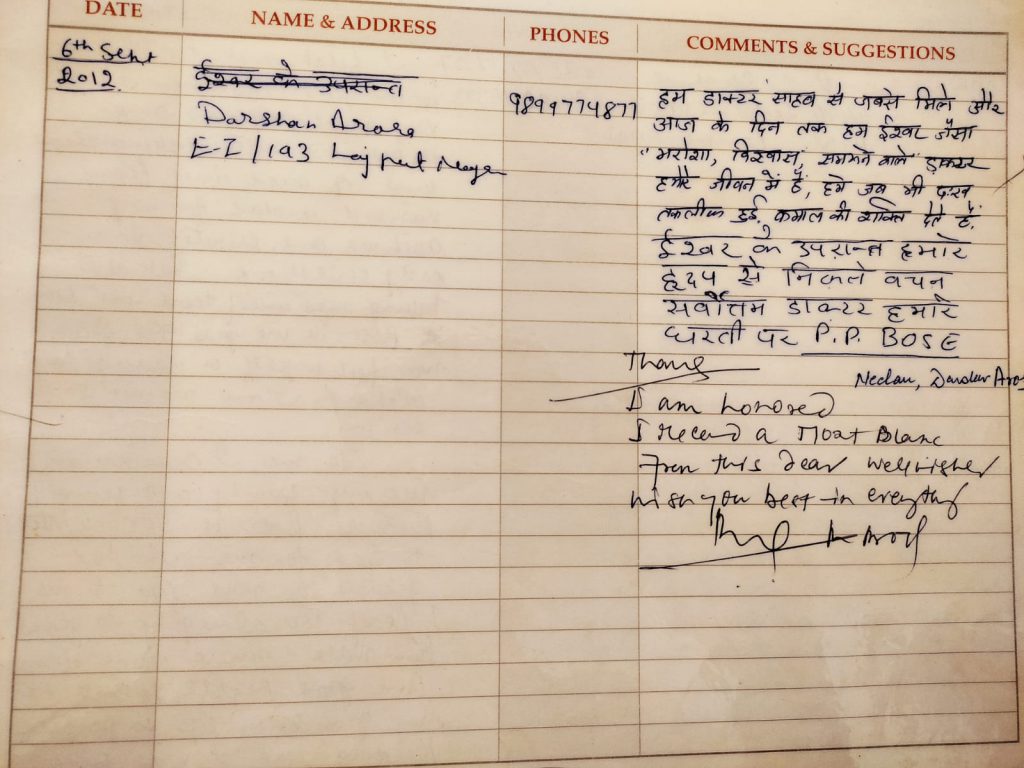 DATE NAME & ADDRESS PHONES COMMENTS & SUGGESTIONS
6th Sept
2012.
ईश्वर के उपरान्त
Darshan Arora
E-I/193 Lajpat Nagar
9899774877
हम डाक्टर साहब से जबसे मिले और
आज के दिन तक हम ईश्वर जैसा
"भरोशा, विश्वास, समझने वाले" डाक्टर
हमारे जीवन में हैं, हमे जब भी दुःख
तकलीफ हुई. कमाल की शक्ति देते हैं.
ईश्वर के उपरान्त हमारे
हृदय से निकले वचन
सर्वोत्तम डाक्टर हमारे
धरती पर P.P. BOSE
Neelam, Darshan Arora
I am honored
I received a Mont Blanc
From this dear wellwisher
wish you best in everything